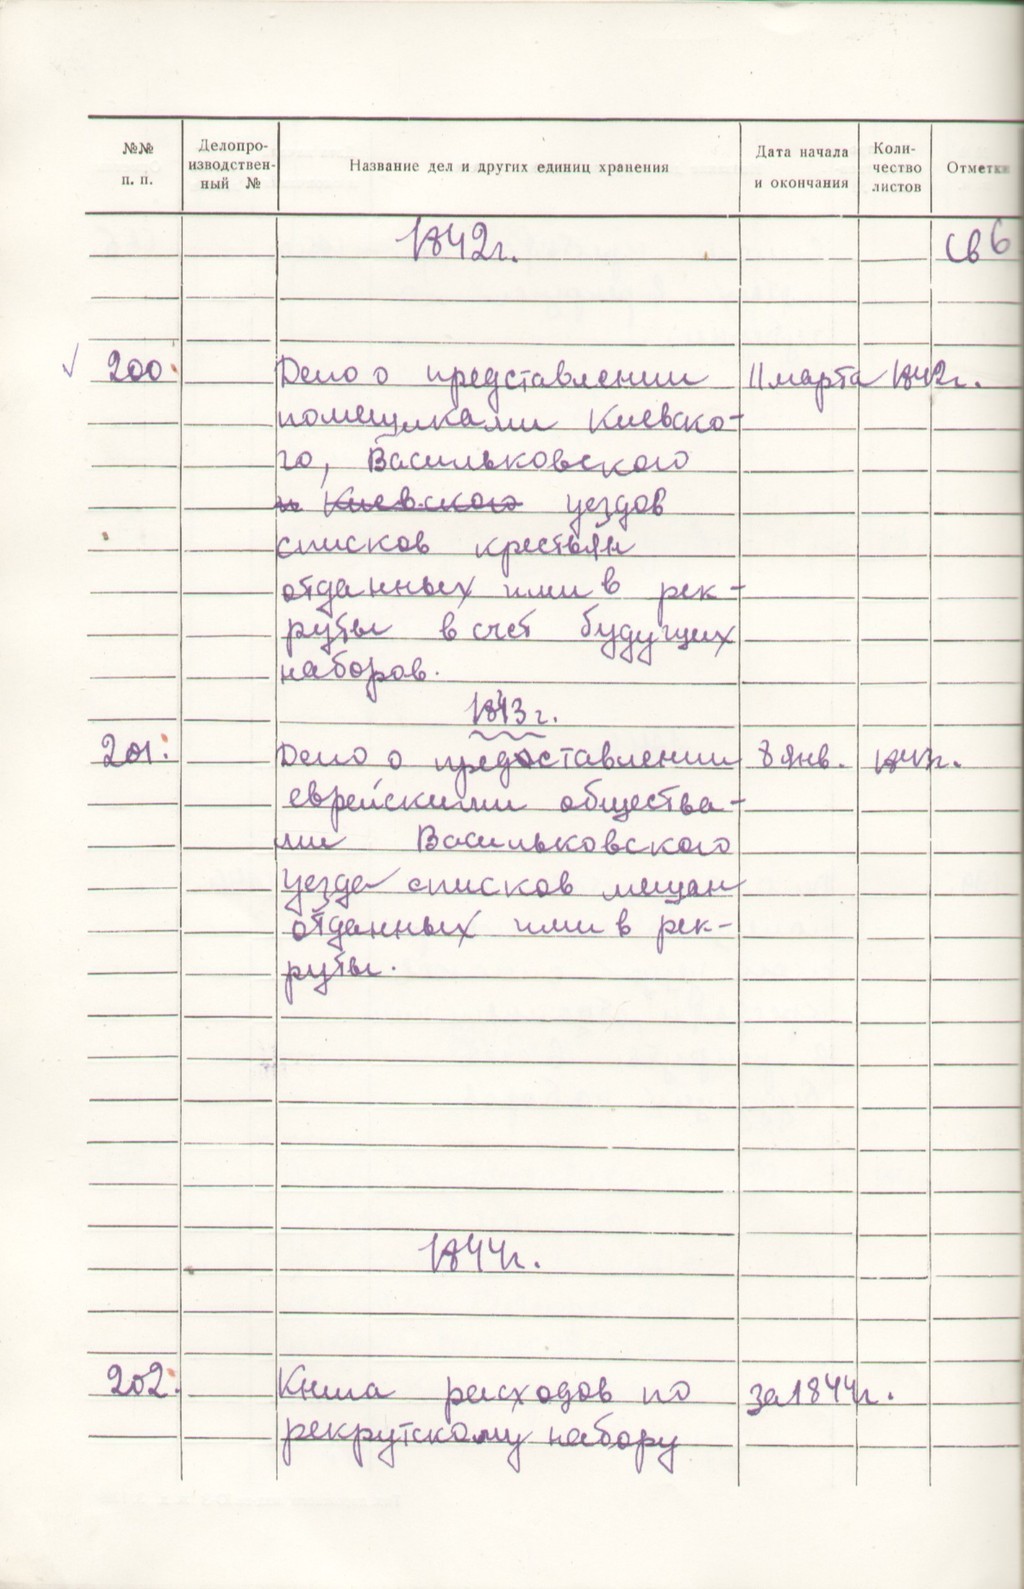 №№ п. п.
Делопроизводствен-
ный №
Название дел и других единиц хранения
Дата начала
и окончания
Коли-
чество
листов
Отметки
1842г.
св 6
200.
Дело о представлении
11 марта 1842г.
помещиками Киевско-
го, Васильковского
и Киевского уездов
списков крестьян
отданных ими в рек-
руты в счет будущих
наборов.
1843г.
201.
Дело о предоставлении
8 янв. 1843г.
еврейскими общества-
ми Васильковского
уезда списков мещан
отданных ими в рек-
руты.
1844г.
202.
Книга расходов по
за 1844г.
рекрутскому набору